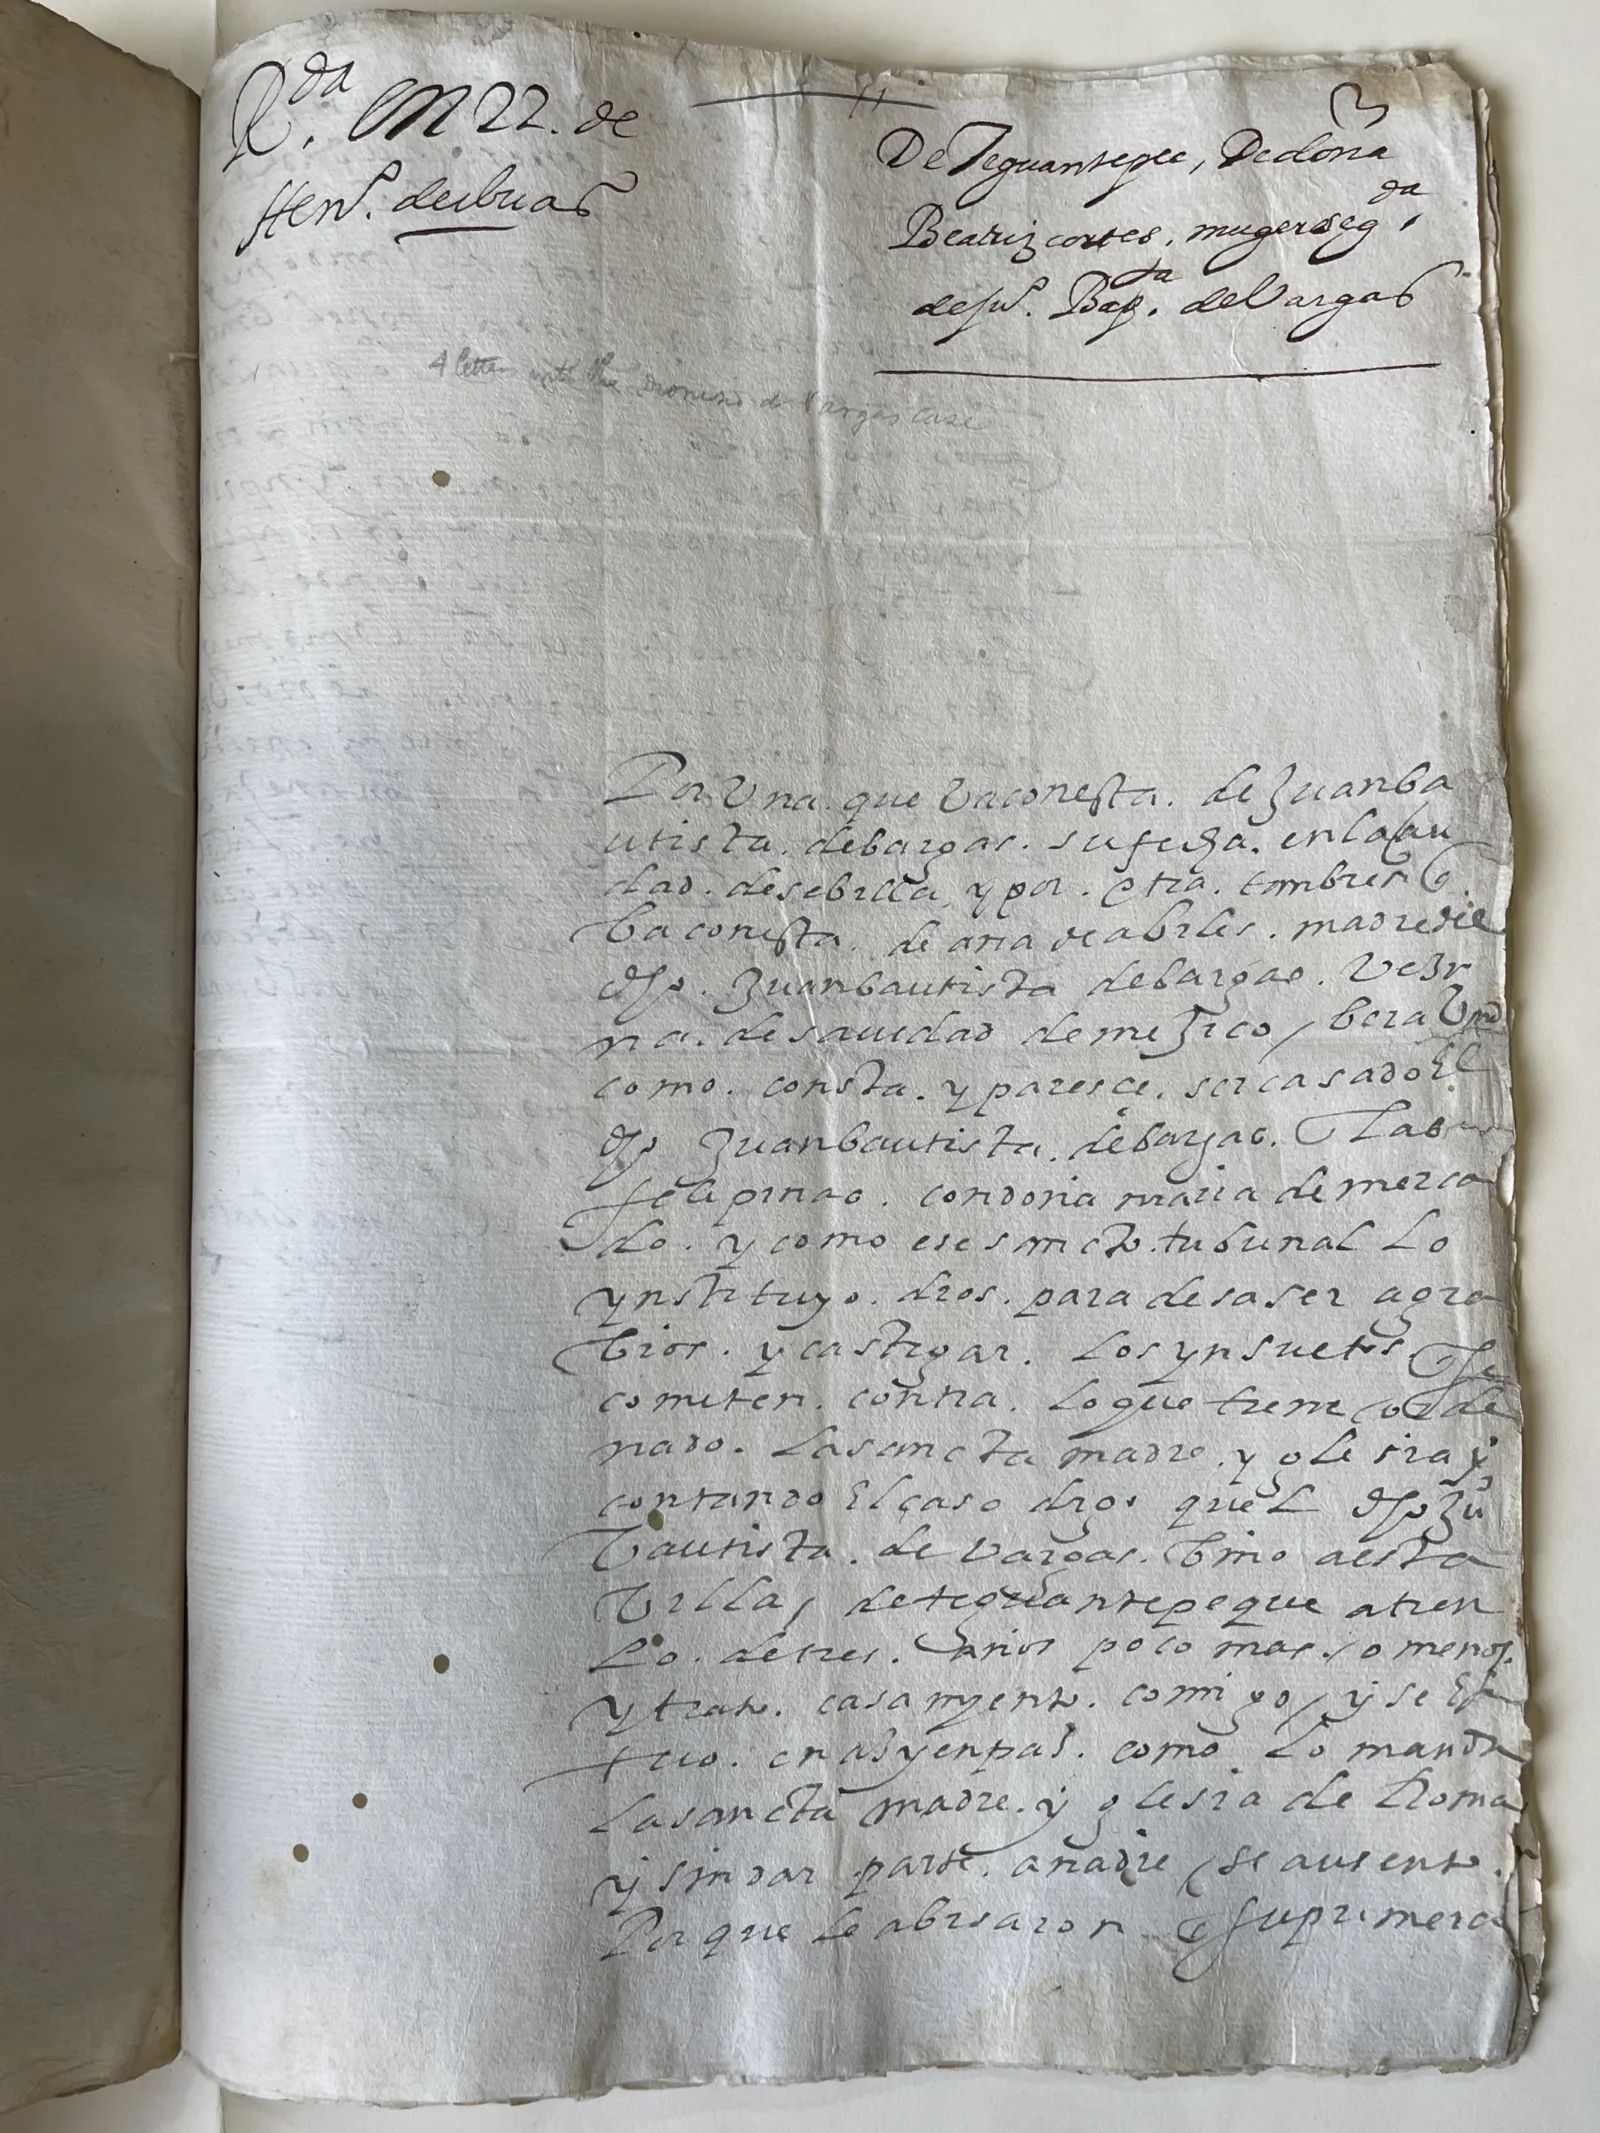 R.da En 22. de
Hen.o de 
3
De Teguantepec, De doña
Beatriz cortes, muger seg.da
de Ju.o Bap.ta de Vargas
4 letters with the Dionisio de Vargas case
Por Una. que Va con esta. de Juan ba
utista. de bargas. su fecha. en la ciu
dad. de sebilla, y por. otra. tambien q
ba con esta. de ana de abiles. madre del
dho. Juan bautista de bargas. vezi
na. de sa ciudad de mexico, bera Vmd
como. consta. y paresce. ser casado El
dho Juan bautista. de bargas.
felipinas. con doña maria de merca
do. y como ese sancto. tribunal Lo
ynstituyo. dios. para desaser agra
bios. y castigar. Los ynsultos q se
cometen. contra. Lo que tiene orde
nado. La sancta madre. yglesia y
contando El caso digo. que L dho Ju
bautista. de Vargas. bino a esta
Villa, de teguantepeque a tien
po. de tres. años poco mas. o menos.
y trato. casamyento. comigo, y se Efe
tuo. en as y en pas. como Lo manda
La sancta madre. yglesia de Roma
y sin dar parte. a nadie, se ausento.
Por que le abisaron q su primera